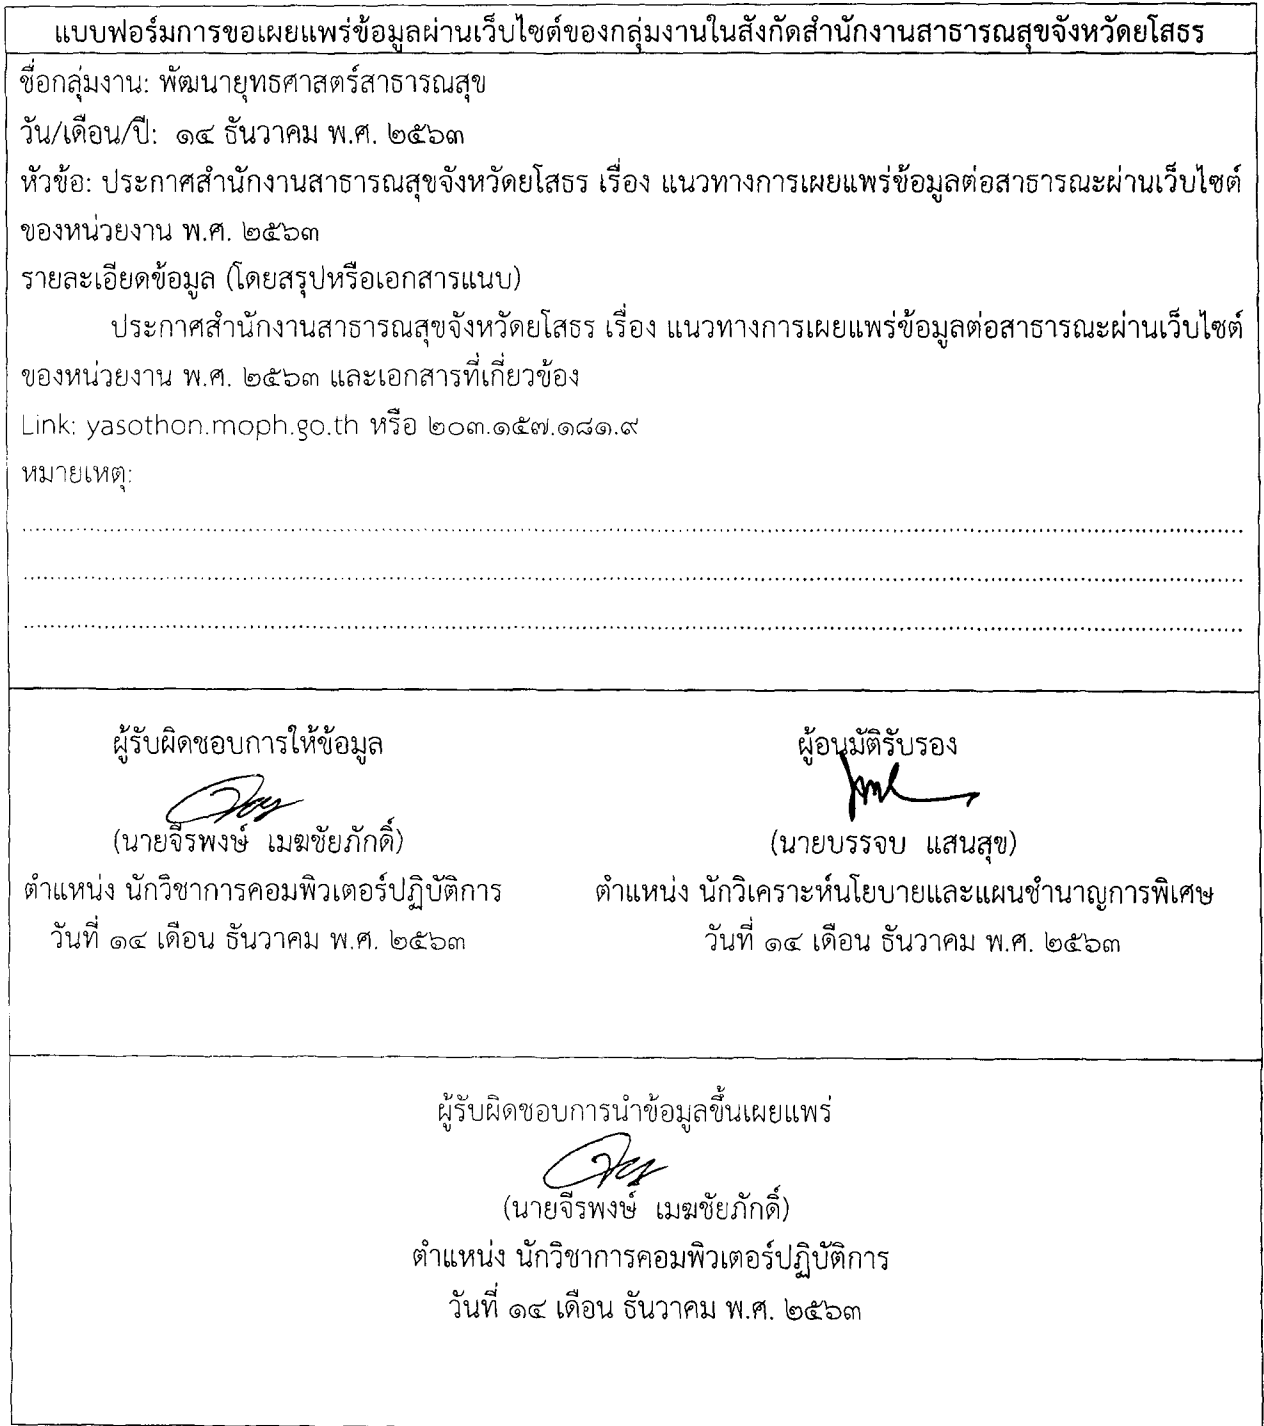 แบบฟอร์มการขอเผยแพร่ข้อมูลผ่านเว็บไซต์ของกลุ่มงานในสังกัดสำนักงานสาธารณสุขจังหวัดยโสธร
ชื่อกลุ่มงาน: พัฒนายุทธศาสตร์สาธารณสุข
วัน/เดือน/ปี: ๑๔ ธันวาคม พ.ศ. ๒๕๖๓
หัวข้อ: ประกาศสำนักงานสาธารณสุขจังหวัดยโสธร เรื่อง แนวทางการเผยแพร่ข้อมูลต่อสาธารณะผ่านเว็บไซต์
ของหน่วยงาน พ.ศ. ๒๕๖๓
รายละเอียดข้อมูล (โดยสรุปหรือเอกสารแนบ)
ประกาศสำนักงานสาธารณสุขจังหวัดยโสธร เรื่อง แนวทางการเผยแพร่ข้อมูลต่อสาธารณะผ่านเว็บไซต์
ของหน่วยงาน พ.ศ. ๒๕๖๓ และเอกสารที่เกี่ยวข้อง
Link: yasothon.moph.go.th หรือ ๒๐๓.๑๕๗.๑๘๑.๙
หมายเหตุ:
ผู้รับผิดชอบการให้ข้อมูล ผู้อนุมัติรับรอง
(นายจีรพงษ์ เมฆชัยภักดิ์) (นายบรรจบ แสนสุข)
ตำแหน่ง นักวิชาการคอมพิวเตอร์ปฏิบัติการ ตำแหน่ง นักวิเคราะห์นโยบายและแผนชำนาญการพิเศษ
วันที่ ๑๔ เดือน ธันวาคม พ.ศ. ๒๕๖๓ วันที่ ๑๔ เดือน ธันวาคม พ.ศ. ๒๕๖๓
ผู้รับผิดชอบการนำข้อมูลขึ้นเผยแพร่
(นายจีรพงษ์ เมฆชัยภักดิ์)
ตำแหน่ง นักวิชาการคอมพิวเตอร์ปฏิบัติการ
วันที่ ๑๔ เดือน ธันวาคม พ.ศ. ๒๕๖๓